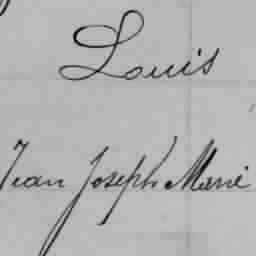 Louis
Jean Joseph Marie